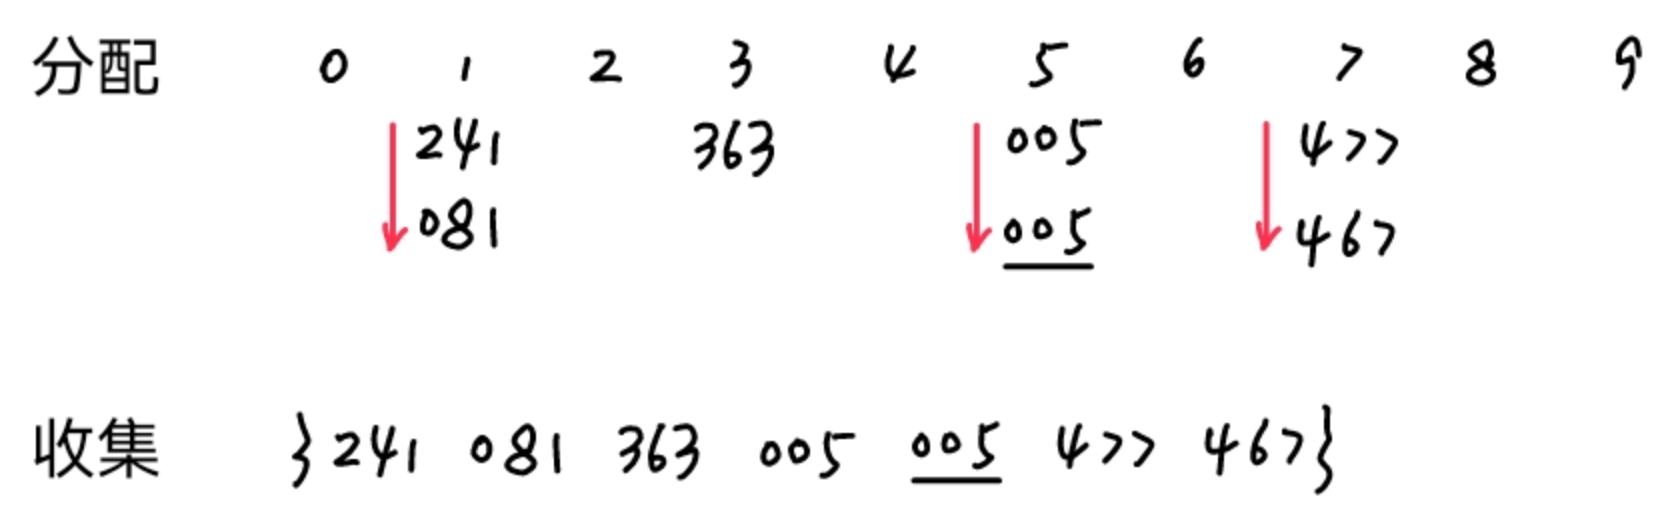 分配 0 1 2 3 4 5 6 7 8 9
241 363 005 477
081 005 467
收集 {241 081 363 005 005 477 467}